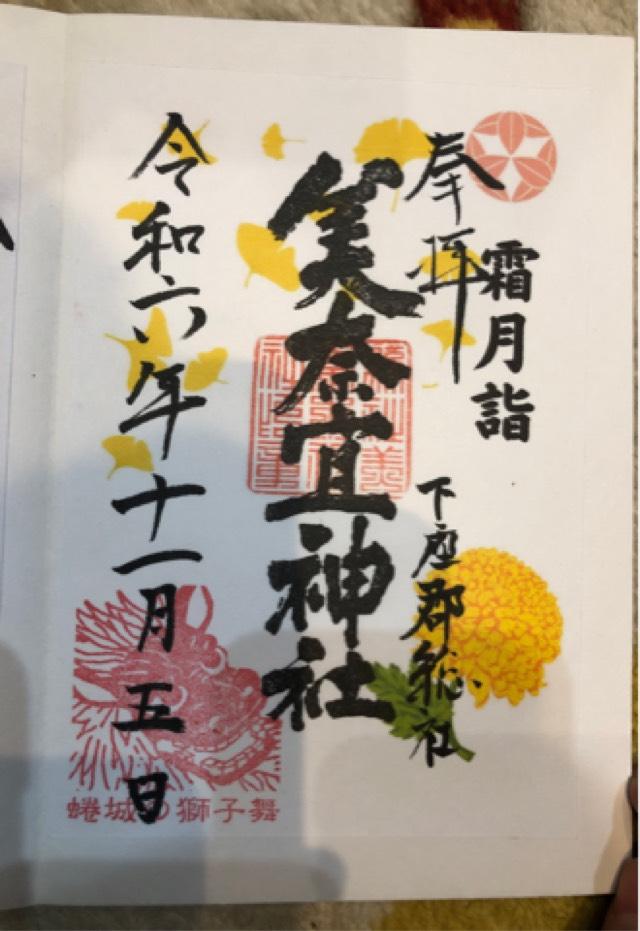 霜月詣
奉拝
下座郡総社
美奈宜神社
令和六年十一月五日
蜷城の獅子舞